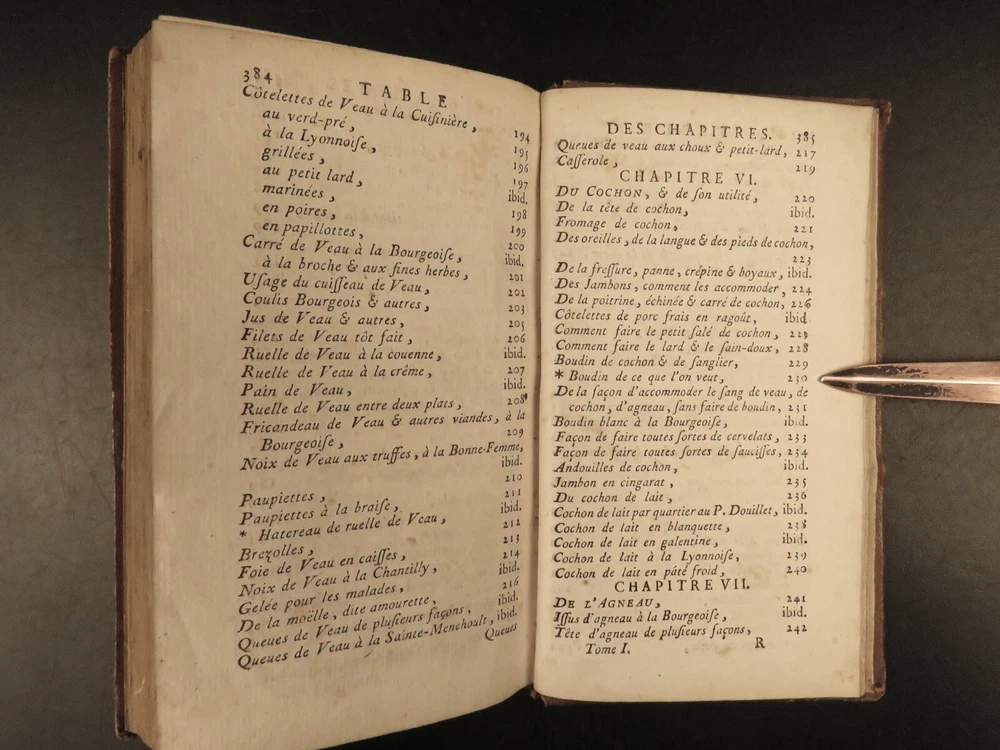 384 TABLE
Côtelettes de Veau à la Cuiſinière, 194
au verd-pré, 195
à la Lyonnoiſe, 196
grillées, 197
au petit lard, ibid.
marinées, 198
en poires, 199
en papillottes, 200
Carré de Veau à la Bourgeoiſe, ibid.
à la broche & aux fines herbes, 201
Uſage du cuiſſeau de Veau, 202
Coulis Bourgeois & autres, 203
Jus de Veau & autres, 205
Filets de Veau tôt fait, 206
Ruelle de Veau à la couenne, ibid.
Ruelle de Veau à la crême, 207
Pain de Veau, ibid.
Ruelle de Veau entre deux plats, 208
Fricandeau de Veau & autres viandes, à la
Bourgeoiſe, 209
Noix de Veau aux truffes, à la Bonne-Femme,
ibid.
Paupiettes, 210
Paupiettes à la braiſe, 211
* Hatereau de ruelle de Veau, ibid.
Brezolles, 212
Foie de Veau en caiſſes, 213
Noix de Veau à la Chantilly, 214
Gelée pour les malades, ibid.
De la moëlle, dite amourette, 216
Queues de Veau de pluſieurs façons, ibid.
Queues de Veau à la Sainte-Menehoult, ibid.
Queues
DES CHAPITRES. 385
Queues de veau aux choux & petit-lard, 217
Caſſerole, 219
CHAPITRE VI.
DU COCHON, & de ſon utilité, 220
De la tête de cochon, ibid.
Fromage de cochon, 221
Des oreilles, de la langue & des pieds de cochon,
223
De la freſſure, panne, crépine & boyaux, ibid.
Des Jambons, comment les accommoder, 224
De la poitrine, échinée & carré de cochon, 226
Côtelettes de porc frais en ragoût, ibid
Comment faire le petit ſalé de cochon, 229
Comment faire le lard & le ſain-doux, 228
Boudin de cochon & de ſanglier, 229
* Boudin de ce que l'on veut, 230
De la façon d'accommoder le ſang de veau, de
cochon, d'agneau, ſans faire de boudin, 231
Boudin blanc à la Bourgeoiſe, ibid.
Façon de faire toutes ſortes de cervelats, 233
Façon de faire toutes ſortes de ſauciſſes, 234
Andouilles de cochon, ibid.
Jambon en cingarat, 235
Du cochon de lait, 236
Cochon de lait par quartier au P. Douillet, ibid.
Cochon de lait en blanquette, 238
Cochon de lait en galentine, ibid.
Cochon de lait à la Lyonnoiſe, 239
Cochon de lait en pâté froid, 240
CHAPITRE VII.
DE L'AGNEAU, 241
Iſſus d'agneau à la Bourgeoiſe, ibid.
Tête d'agneau de pluſieurs façons, 242
Tome I. R